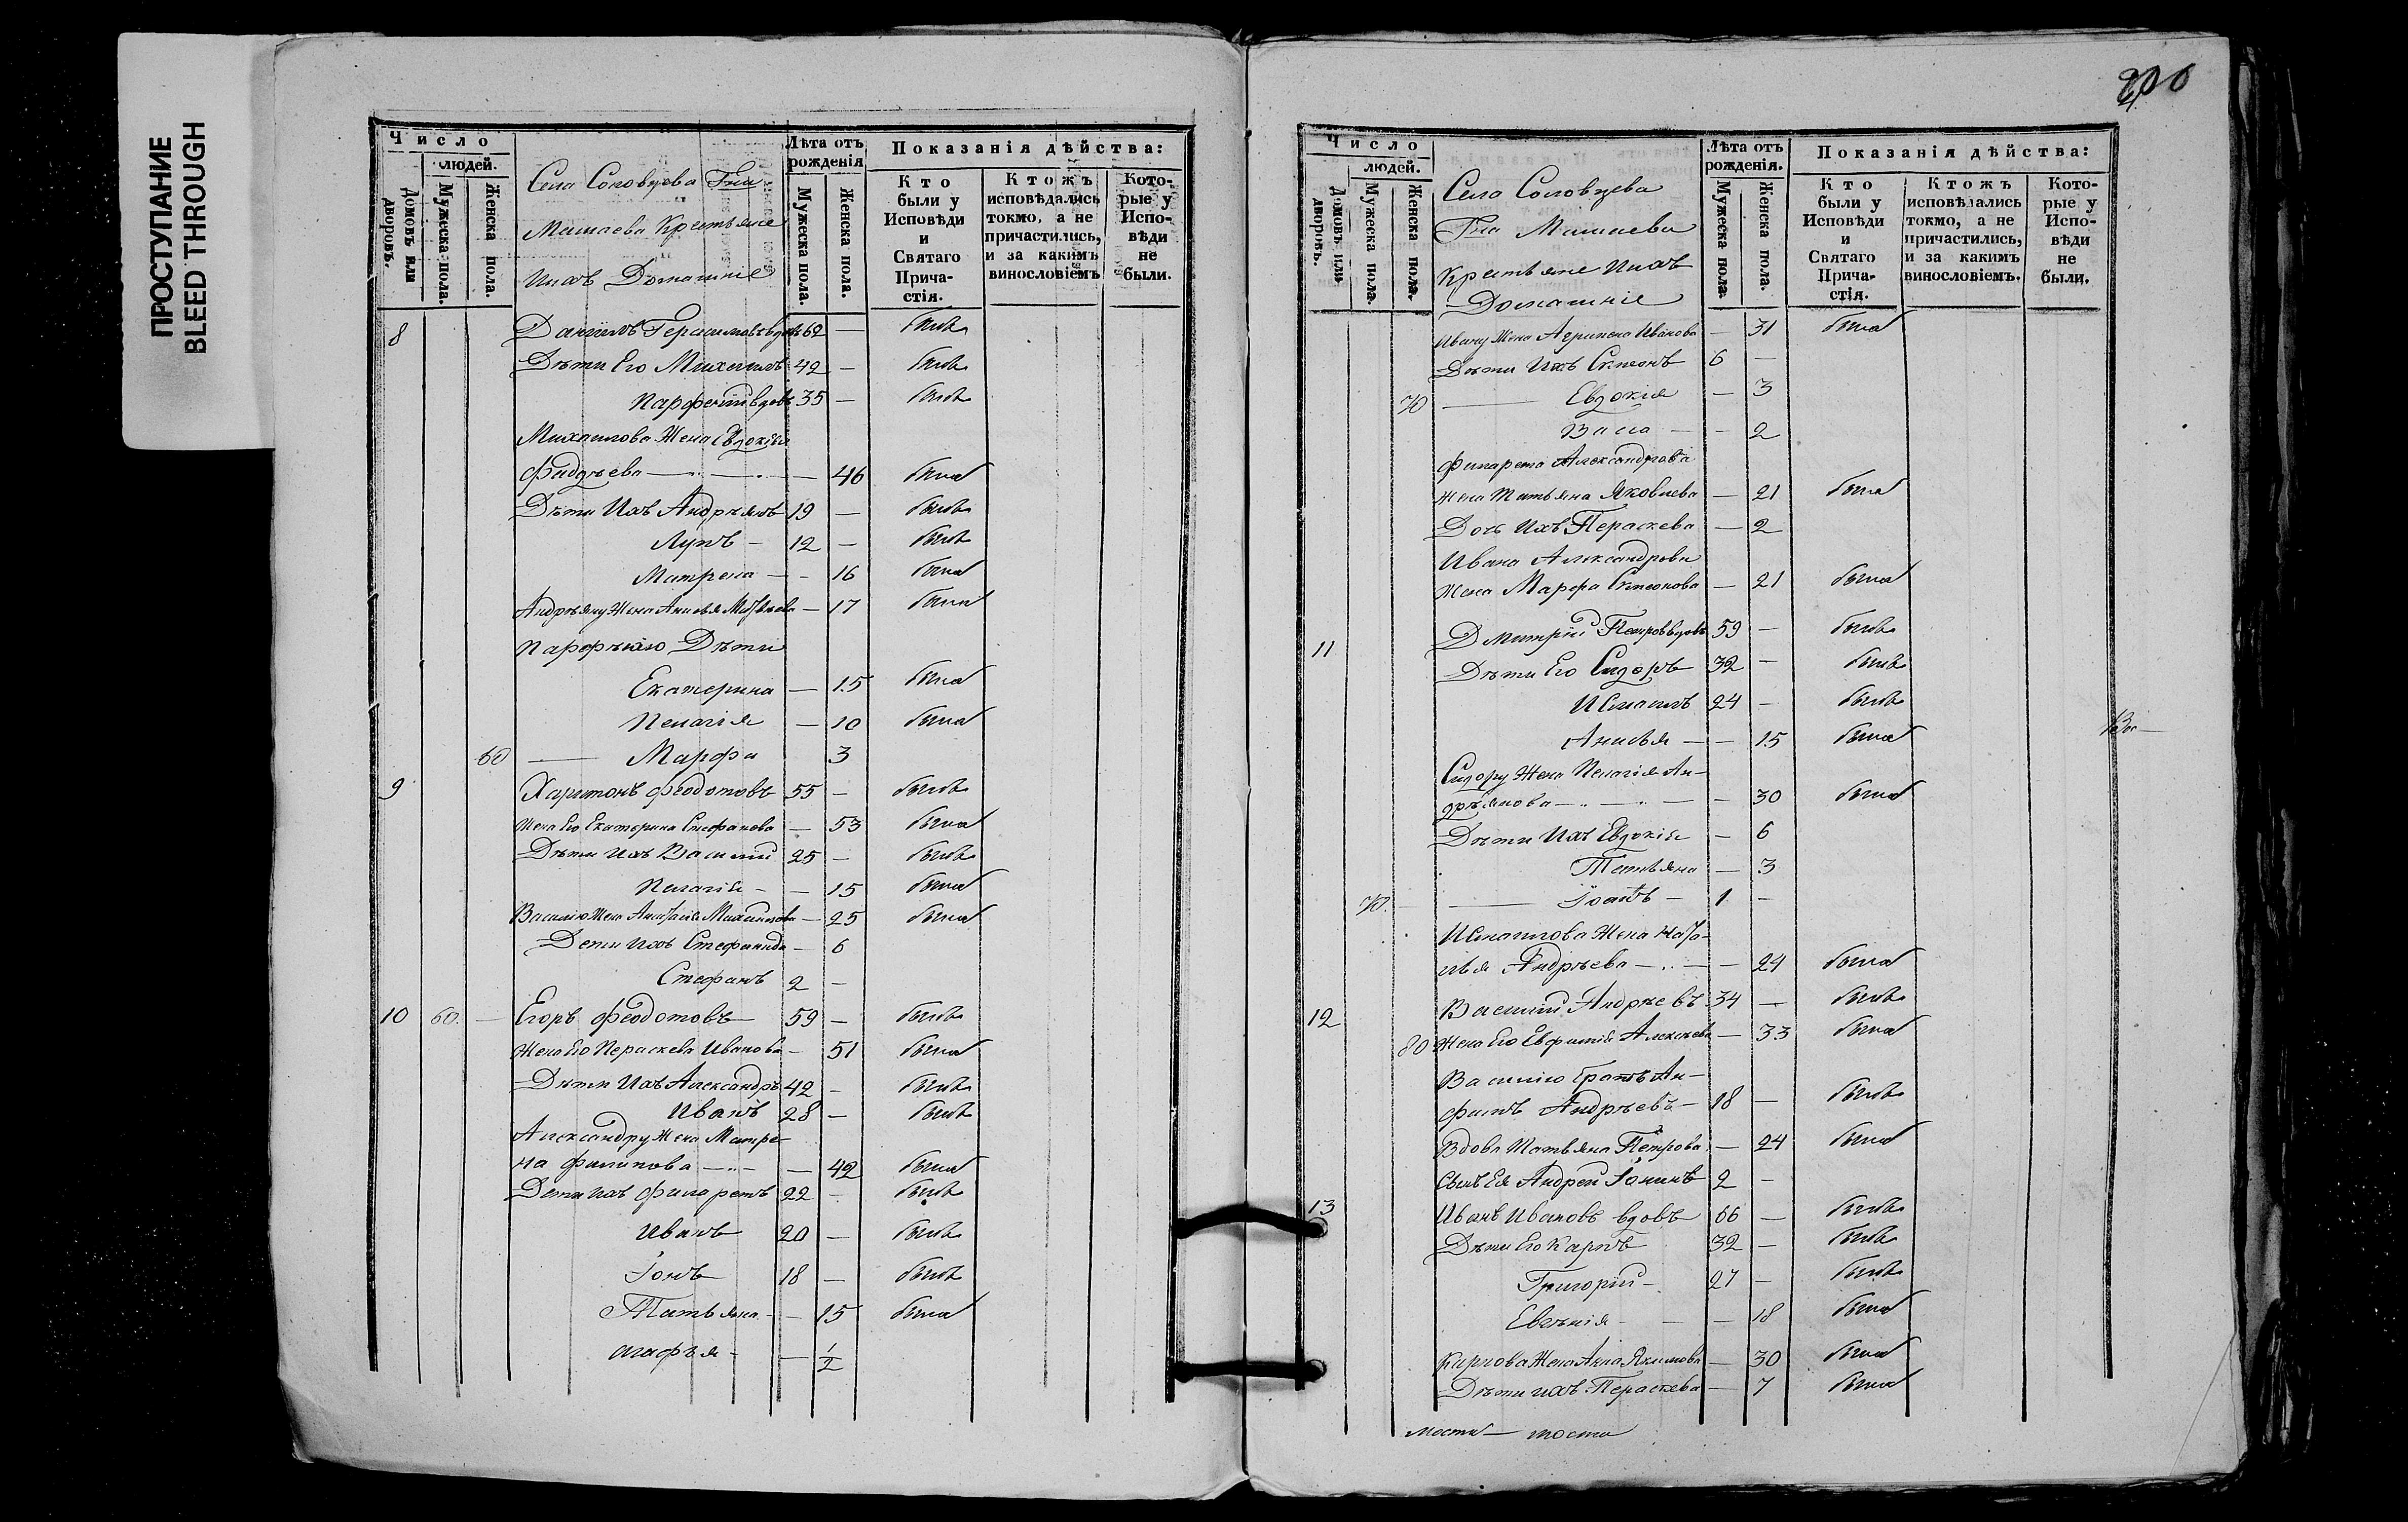 ПРОСТУПАНИЕ
BLEED THROUGH
Число
людей.
Домовъ или дворовъ.
Мужеска пола.
Женска пола.
Села Соловцева Гна
Мишаева Крестьяне
Ихъ Домашніе
Лѣта отъ рожденія
Мужеска пола.
Женска пола.
Показанія дѣйства:
Кто были у Исповѣди и Святаго Прича-стія.
Ктожъ исповѣдались токмо, а не причастились, и за какимъ винословіемъ
Кото-рые у Испо-вѣди не были.
8 Данїилъ Герасимовъ вдовъ 62 — былъ
Дѣти Его Михаилъ 42 — былъ
Парфеній вдовъ 35 — былъ
Михаилова Жена Евдокія
Фадѣева — — 46 была
Дѣти Ихъ Андреянъ 19 — былъ
Лупъ — 12 — былъ
Матрена — — 16 была
Андрѣяну Жена Анисья Матвѣева — 17 была
Парфѣнію Дѣти
Екатерина — 15 была
Пелагія — 10 была
60 — Марфа 3
9 Харитонъ Феодотовъ 55 — былъ
Жена Его Екатерина Стефанова — 53 была
Дѣти Ихъ Василій 25 — былъ
Пелагія — — 15 была
Василію Жена Анастасія Михаилова — 25 была
Дети Ихъ Стефанида — 6
Стефанъ 2 —
10 60. — Егоръ Феодотовъ 59 — былъ
Жена Его Пераскева Иванова — 51 была
Дѣти Ихъ Александръ 42 — былъ
Иванъ 28 — былъ
Александру Жена Матре-
на Филипова — — 42 была
Дети Ихъ Филаретъ 22 — былъ
Иванъ 20 — былъ
Іонъ 18 — былъ
Татьяна — — 15 была
Агафья — — 1/2
200
Число
людей.
Домовъ или дворовъ.
Мужеска пола.
Женска пола.
Села Соловцева
Гна Мишаева
Крестьяне Ихъ
Домашніе
Лѣта отъ рожденія.
Мужеска пола.
Женска пола.
Показанія дѣйства:
Кто были у Исповѣди и Святаго Прича-стія.
Ктожъ исповѣдались токмо, а не причастились, и за какимъ винословіемъ.
Кото-рые у Испо-вѣди не были.
Ивану Жена Агрипена Иванова — 31 была
Дѣти Ихъ Симеонъ 6 —
70 — Евдокія — 3
Васа — — 2
Филарета Александрова
Жена Татьяна Яковлева — 21 была
Дочь Ихъ Пераскева — 2
Ивана Александрова
Жена Марфа Симеонова — 21 была
11 Дмитрій Петровъ вдовъ 59 — былъ
Дѣти Его Сидоръ 32 — былъ
Исмаилъ 24 — былъ
Анисья — — 15 была
Сидору Жена Пелагія Ан-
дрѣянова — — 30 была
Дѣти Ихъ Евдокія — 6
Татьяна — 3
70. — Іоанъ — 1 —
Исмаилова Жена Ната-
лья Андрѣева — — 24 была
12 Василій Андрѣевъ 34 — былъ
80 Жена Его Евфимія Алексѣева — 33 была
Василію братъ Ан-
фимъ Андрѣевъ — 18 — былъ
Вдова Татьяна Петрова — 24 была
Сынъ Ея Андрей Іонинъ 2 —
13 Иванъ Ивановъ вдовъ 66 — былъ
Дѣти Его Карпъ 32 — былъ
Григорій — 27 — былъ
Евгѣнія — — 18 была
Карпова Жена Анна Якимова — 30 была
Дѣти ихъ Пераскева — 7 была